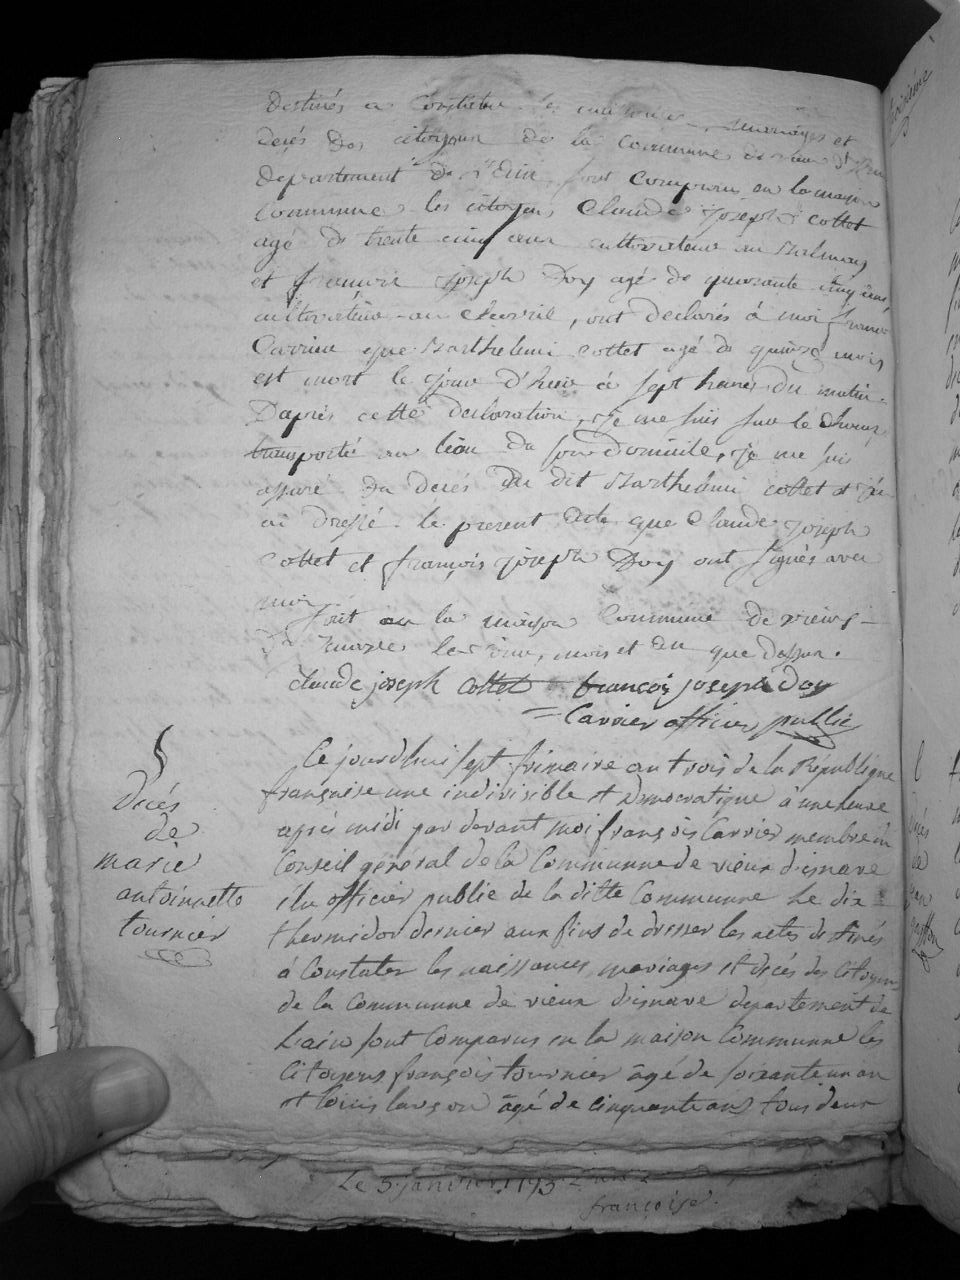 destinés a Constater les naissances, mariages et
decés des citoyens de la Commune de vieux d'
departement de l'ain, sont Comparu en la maison
Commune les citoyens Claude joseph cottet
agé de trente cinq ans cultivateur au
et françois joseph Doy agé de quarante cinq ans
cultivateur au chevril, ont declarés à moi françois
Carrier que Barthelemi cottet agé de quinze mois
est mort le jour d'hui à sept heures du matin.
D'aprés cette declaration, je me suis sur le champ
transporté au lieu du son domicile, je me suis
assuré du decés du dit Barthelemi cottet et j'en
ai dressé le present acte que Claude joseph
cottet et françois joseph Doy ont signés avec
moi
fait en la maison Commune de vieux
les jour, mois et an que dessus.
claude joseph cottet françois joseph doy
Carrier officier public
Ce jourd'hui sept frimaire an trois de la République
française une indivisible et democratique à une heure
après midi par devant moi françois Carrier membre du
Conseil général de la Commune de vieux d'isnave
élu officier public de la ditte Commune Le dix
thermidor dernier aux fins de dresser les actes destinés
à Constater les naissances mariages et décés des Citoyens
de la Commune de vieux d'isnave departement de
L'ain sont Comparus en la maison Commune les
Citoyens françois tournier âgé de soixante un an
et louis âgé de cinquante ans tous deux
Décés
de
marie
antoinette
tournier
Le 5 janvier
françoise